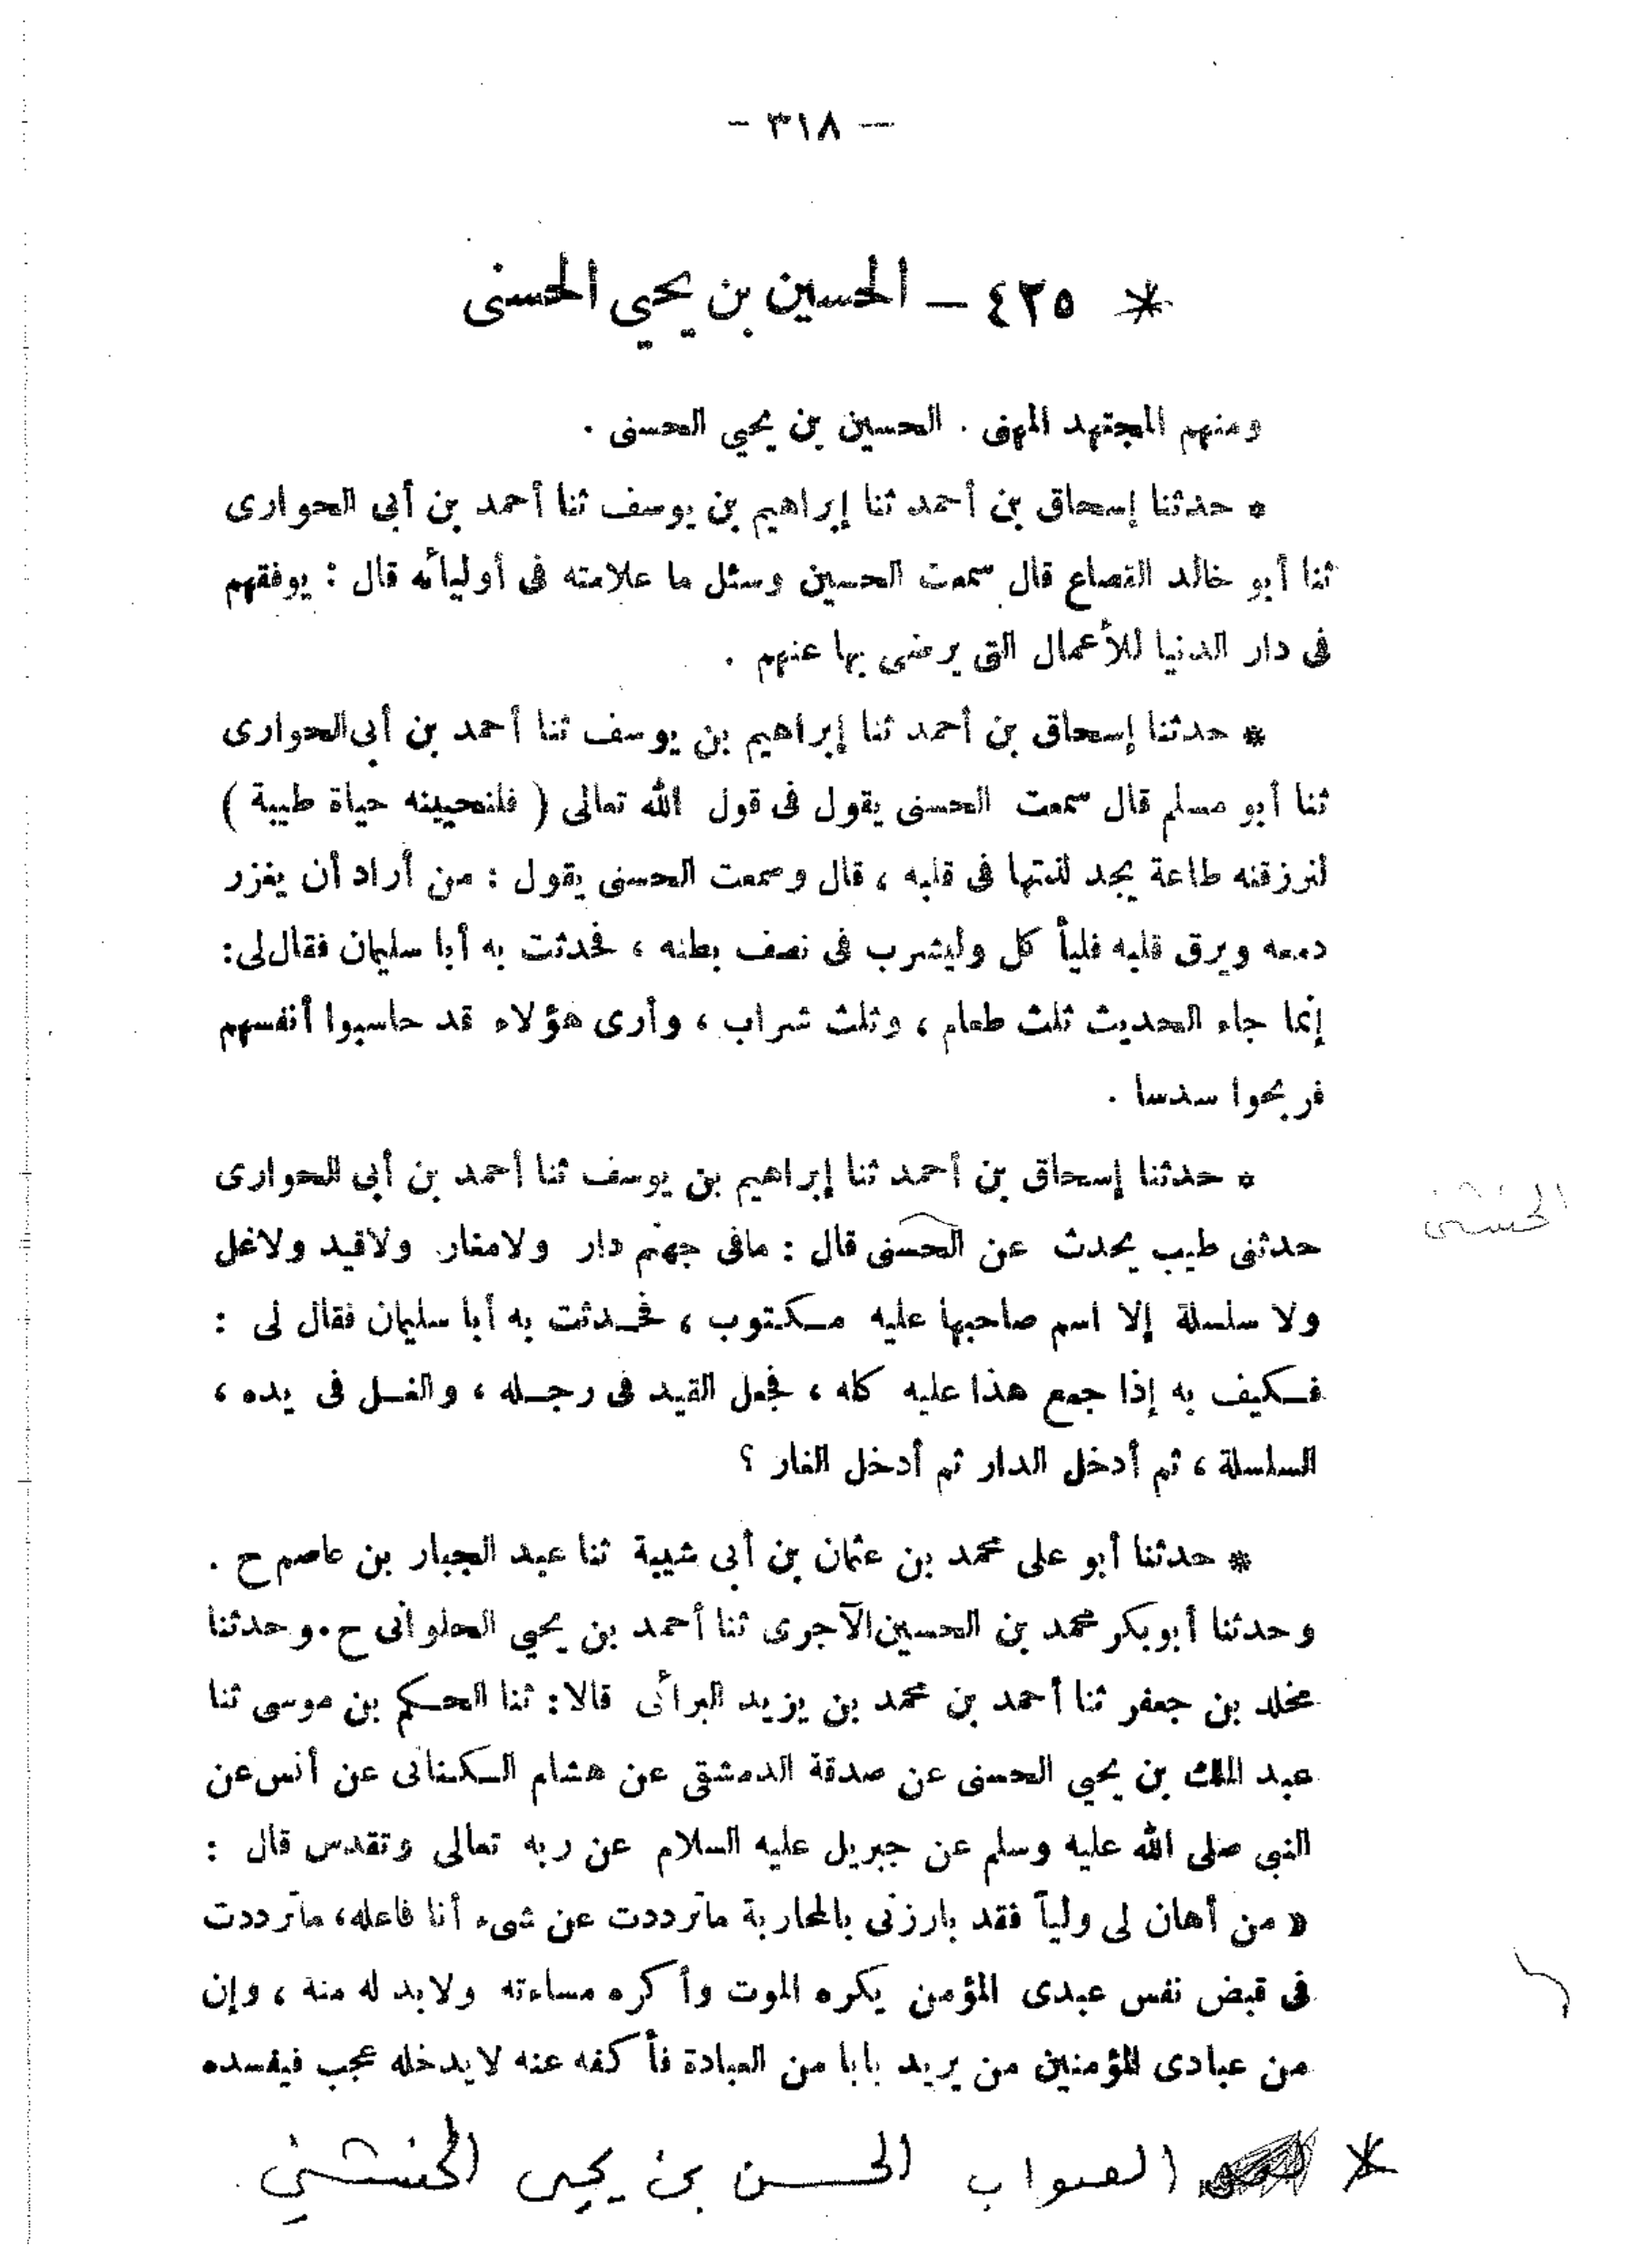 — ٣١٨ —
* ٤٢٥ — الحسين بن يحيى الحسنى
ومنهم المجتهد المهنى . الحسين بن يحيى الحسنى .
* حدثنا إسحاق بن أحمد ثنا إبراهيم بن يوسف ثنا أحمد بن أبى الحوارى
ثنا أبو خالد القصاع قال سمعت الحسين وسئل ما علامته فى أوليائه قال : يوفقهم
فى دار الدنيا للأعمال التى يرضى بها عنهم .
* حدثنا إسحاق بن أحمد ثنا إبراهيم بن يوسف ثنا أحمد بن أبى الحوارى
ثنا أبو مسلم قال سمعت الحسنى يقول فى قول الله تعالى ( فلنحيينه حياة طيبة )
لنرزقنه طاعة يجد لذتها فى قلبه ، قال وسمعت الحسنى يقول : من أراد أن يغزر
دمعه ويرق قلبه فليأ كل وليشرب فى نصف بطنه ، فحدثت به أبا سليمان فقال لى :
إنما جاء الحديث ثلث طعام ، وثلث شراب ، وأرى هؤلاء قد حاسبوا أنفسهم
فربحوا سدسا .
* حدثنا إسحاق بن أحمد ثنا إبراهيم بن يوسف ثنا أحمد بن أبى الحوارى
الخشنى
حدثنى طيب يحدث عن الحسنى قال : مافى جهنم دار ولامغار ولاقيد ولاغل
ولا سلسلة إلا اسم صاحبها عليه مكتوب ، فحدثت به أبا سليمان فقال لى :
فكيف به إذا جمع هذا عليه كله ، فجعل القيد فى رجله ، والغل فى يده ،
السلسلة ، ثم أدخل الدار ثم أدخل الغار ؟
* حدثنا أبو على محمد بن عثمان بن أبى شيبة ثنا عبد الجبار بن عاصم ح .
وحدثنا أبو بكر محمد بن الحسين الآجرى ثنا أحمد بن يحيى الحلوانى ح . وحدثنا
مخلد بن جعفر ثنا أحمد بن محمد بن يزيد البرائى قالا : ثنا الحكم بن موسى ثنا
عبد الملك بن يحيى الحسنى عن صدقة الدمشقى عن هشام الكنانى عن أنس عن
النبى صلى الله عليه وسلم عن جبريل عليه السلام عن ربه تعالى وتقدس قال :
« من أهان لى ولياً فقد بارزنى بالمحاربة ماترددت عن شىء أنا فاعله، ماترددت
فى قبض نفس عبدى المؤمن يكره الموت وأكره مساءته ولابد له منة ، وإن
من عبادى المؤمنين من يريد بابا من العبادة فأ كفه عنه لايدخله عجب فيفسده
* الصواب الحسن بن يحيى الخشني .